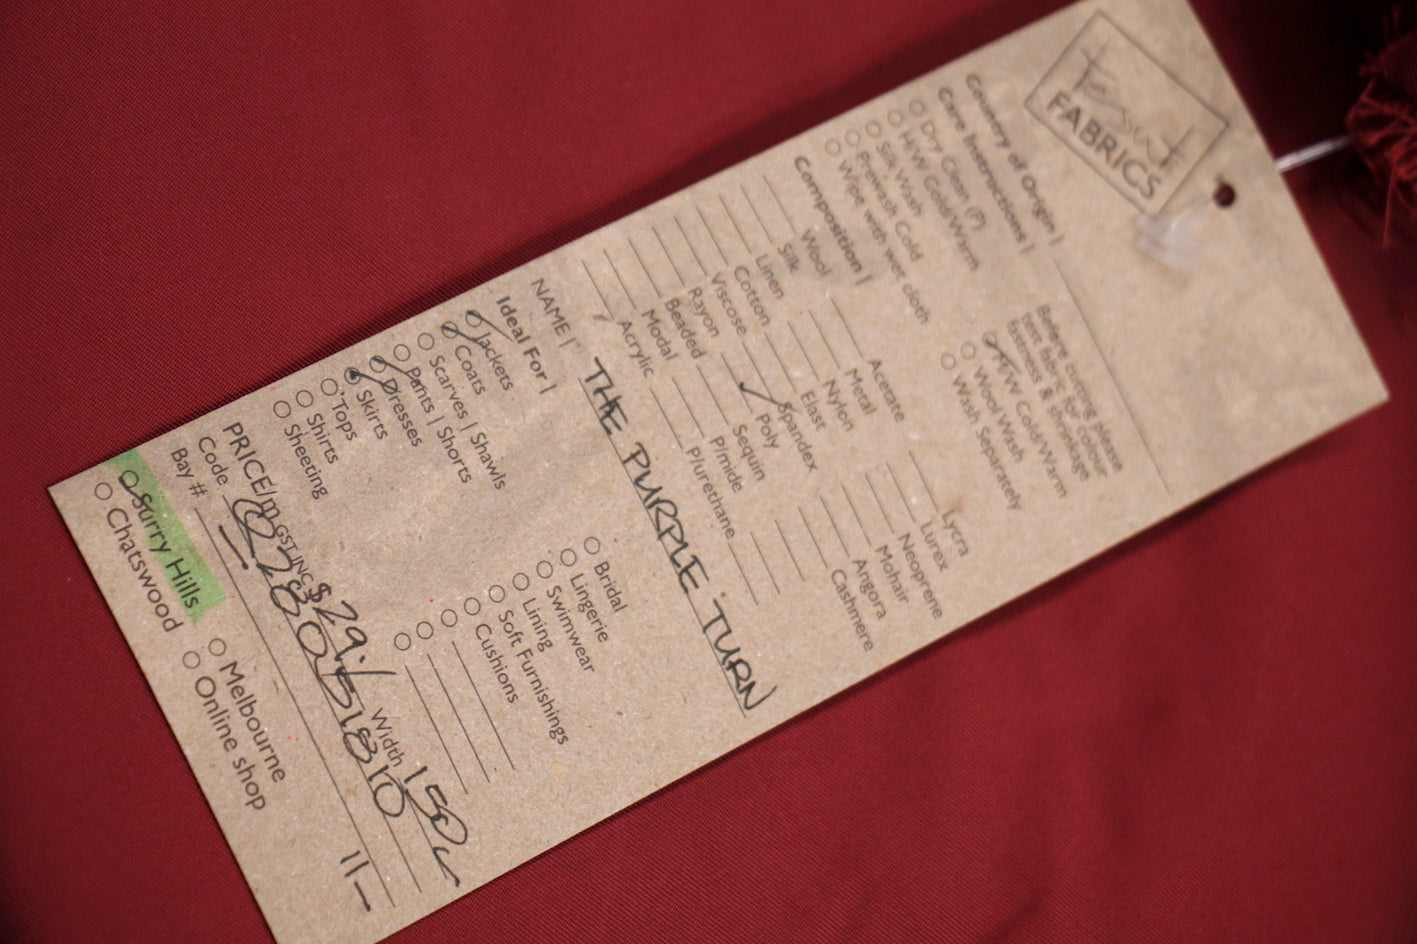 FABRICS
Country of Origin |
Care Instructions |
Dry Clean (P)
H/W Cold/Warm
Silk Wash
Prewash Cold
Wipe with wet cloth
Before cutting please
test fabric for colour
fastness & shrinkage
H/W Cold/Warm
Wool Wash
Wash Separately
Composition |
Wool Acetate Lycra
Silk Metal Lurex
Linen Nylon Neoprene
Cotton Elast Mohair
Viscose Spandex Angora
Rayon Poly Cashmere
Beaded Sequin
Modal P/mide
Acrylic P/urethane
NAME | THE PURPLE TURN
Ideal For |
Jackets Bridal
Coats Lingerie
Scarves | Shawls Swimwear
Pants | Shorts Lining
Dresses Soft Furnishings
Skirts Cushions
Tops
Shirts
Sheeting
PRICE/m GST INC $29./ Width 150
Code
Bay # 11-
Surry Hills Melbourne
Chatswood Online shop